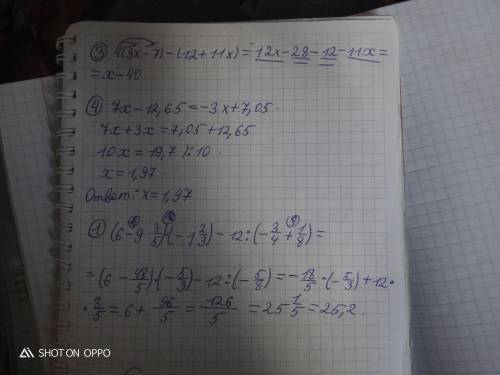 ③ 4(3x-7)-(12+11x)=12x-28-12-11x=
=x-40
④ 7x-12,65=-3x+7,05.
7x+3x=7,05+12,65
10x=19,7 /:10.
x=1,97.
Ответ: x=1,97
① (6-9 3/5)·(-1 2/3)-12:(-3/4+1/8)=
=(6-48/5)·(-5/3)-12:(-5/8)=-18/5·(-5/3)+12·
·8/5=6+96/5=126/5=25 1/5=25,2.
SHOT ON OPPO